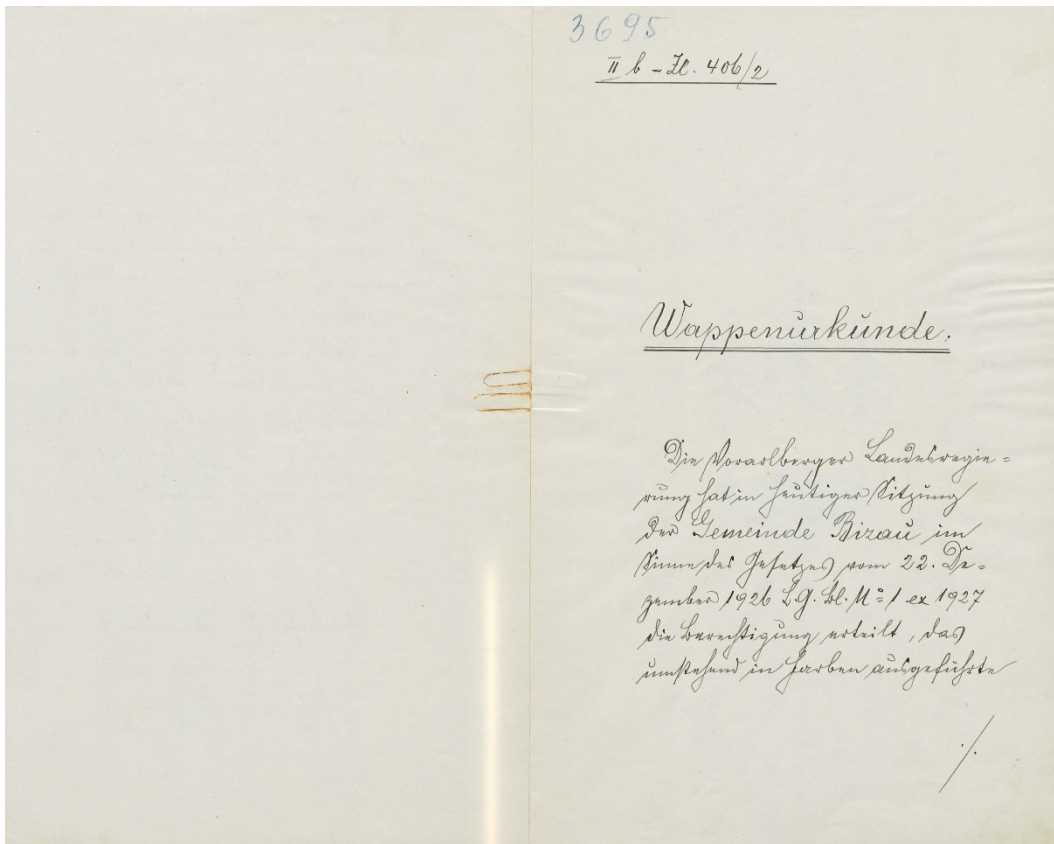 3695
II b - Zl. 406/2
Wappenurkunde.
Die Vorarlberger Landesregie=
rung hat in heutiger Sitzung
der Gemeinde Bizau im
Sinne des Gesetzes vom 22. De=
zember 1926 L.G.Bl. No 1 ex 1927
die Berechtigung erteilt, das
umstehend in Farben ausgeführte
./.